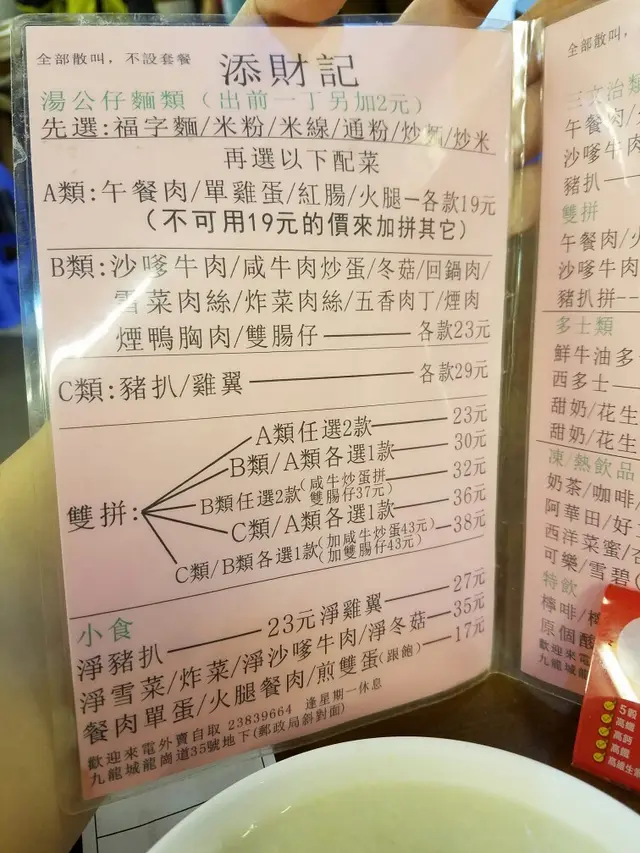 全部散叫,不設套餐
添財記
湯公仔麵類(出前一丁另加2元)
先選:福字麵/米粉/米線/通粉/炒麵/炒米
再選以下配菜
A類:午餐肉/單雞蛋/紅腸/火腿一各款19元
(不可用19元的價來加拼其它)
B類:沙嗲牛肉/咸牛肉炒蛋/冬菇/回鍋肉/
雪菜肉絲/炸菜肉絲/五香肉丁/煙肉
煙鴨胸肉/雙腸仔——各款23元
C類:豬扒/雞翼——各款29元
雙拼:
A類任選2款——23元
B類/A類各選1款——30元
B類任選2款(咸牛炒蛋拼雙腸仔37元)——32元
C類/A類各選1款——36元
C類/B類各選1款(加咸牛炒蛋43元)(加雙腸仔43元)—38元
小食
淨豬扒——23元淨雞翼——27元
淨雪菜/炸菜/淨沙嗲牛肉/淨冬菇—35元
餐肉單蛋/火腿餐肉/煎雙蛋(跟飽)—17元
歡迎來電外賣自取 23839664 逢星期一休息
九龍城龍崗道35號地下(郵政局斜對面)
全部散叫,
三文治類
午餐肉/
沙嗲牛肉
豬扒——
雙拼
午餐肉/火
沙嗲牛肉
豬扒拼--
多士類
鮮牛油多
西多士—
甜奶/花生
甜奶/花生
凍/熱飲品
奶茶/咖啡/
阿華田/好
西洋菜蜜/杏
可樂/雪碧
特飲
檸啡/檸
原個酸
歡迎來電
九龍城龍
5穀
高纖
高鈣
高鐵
高維生素